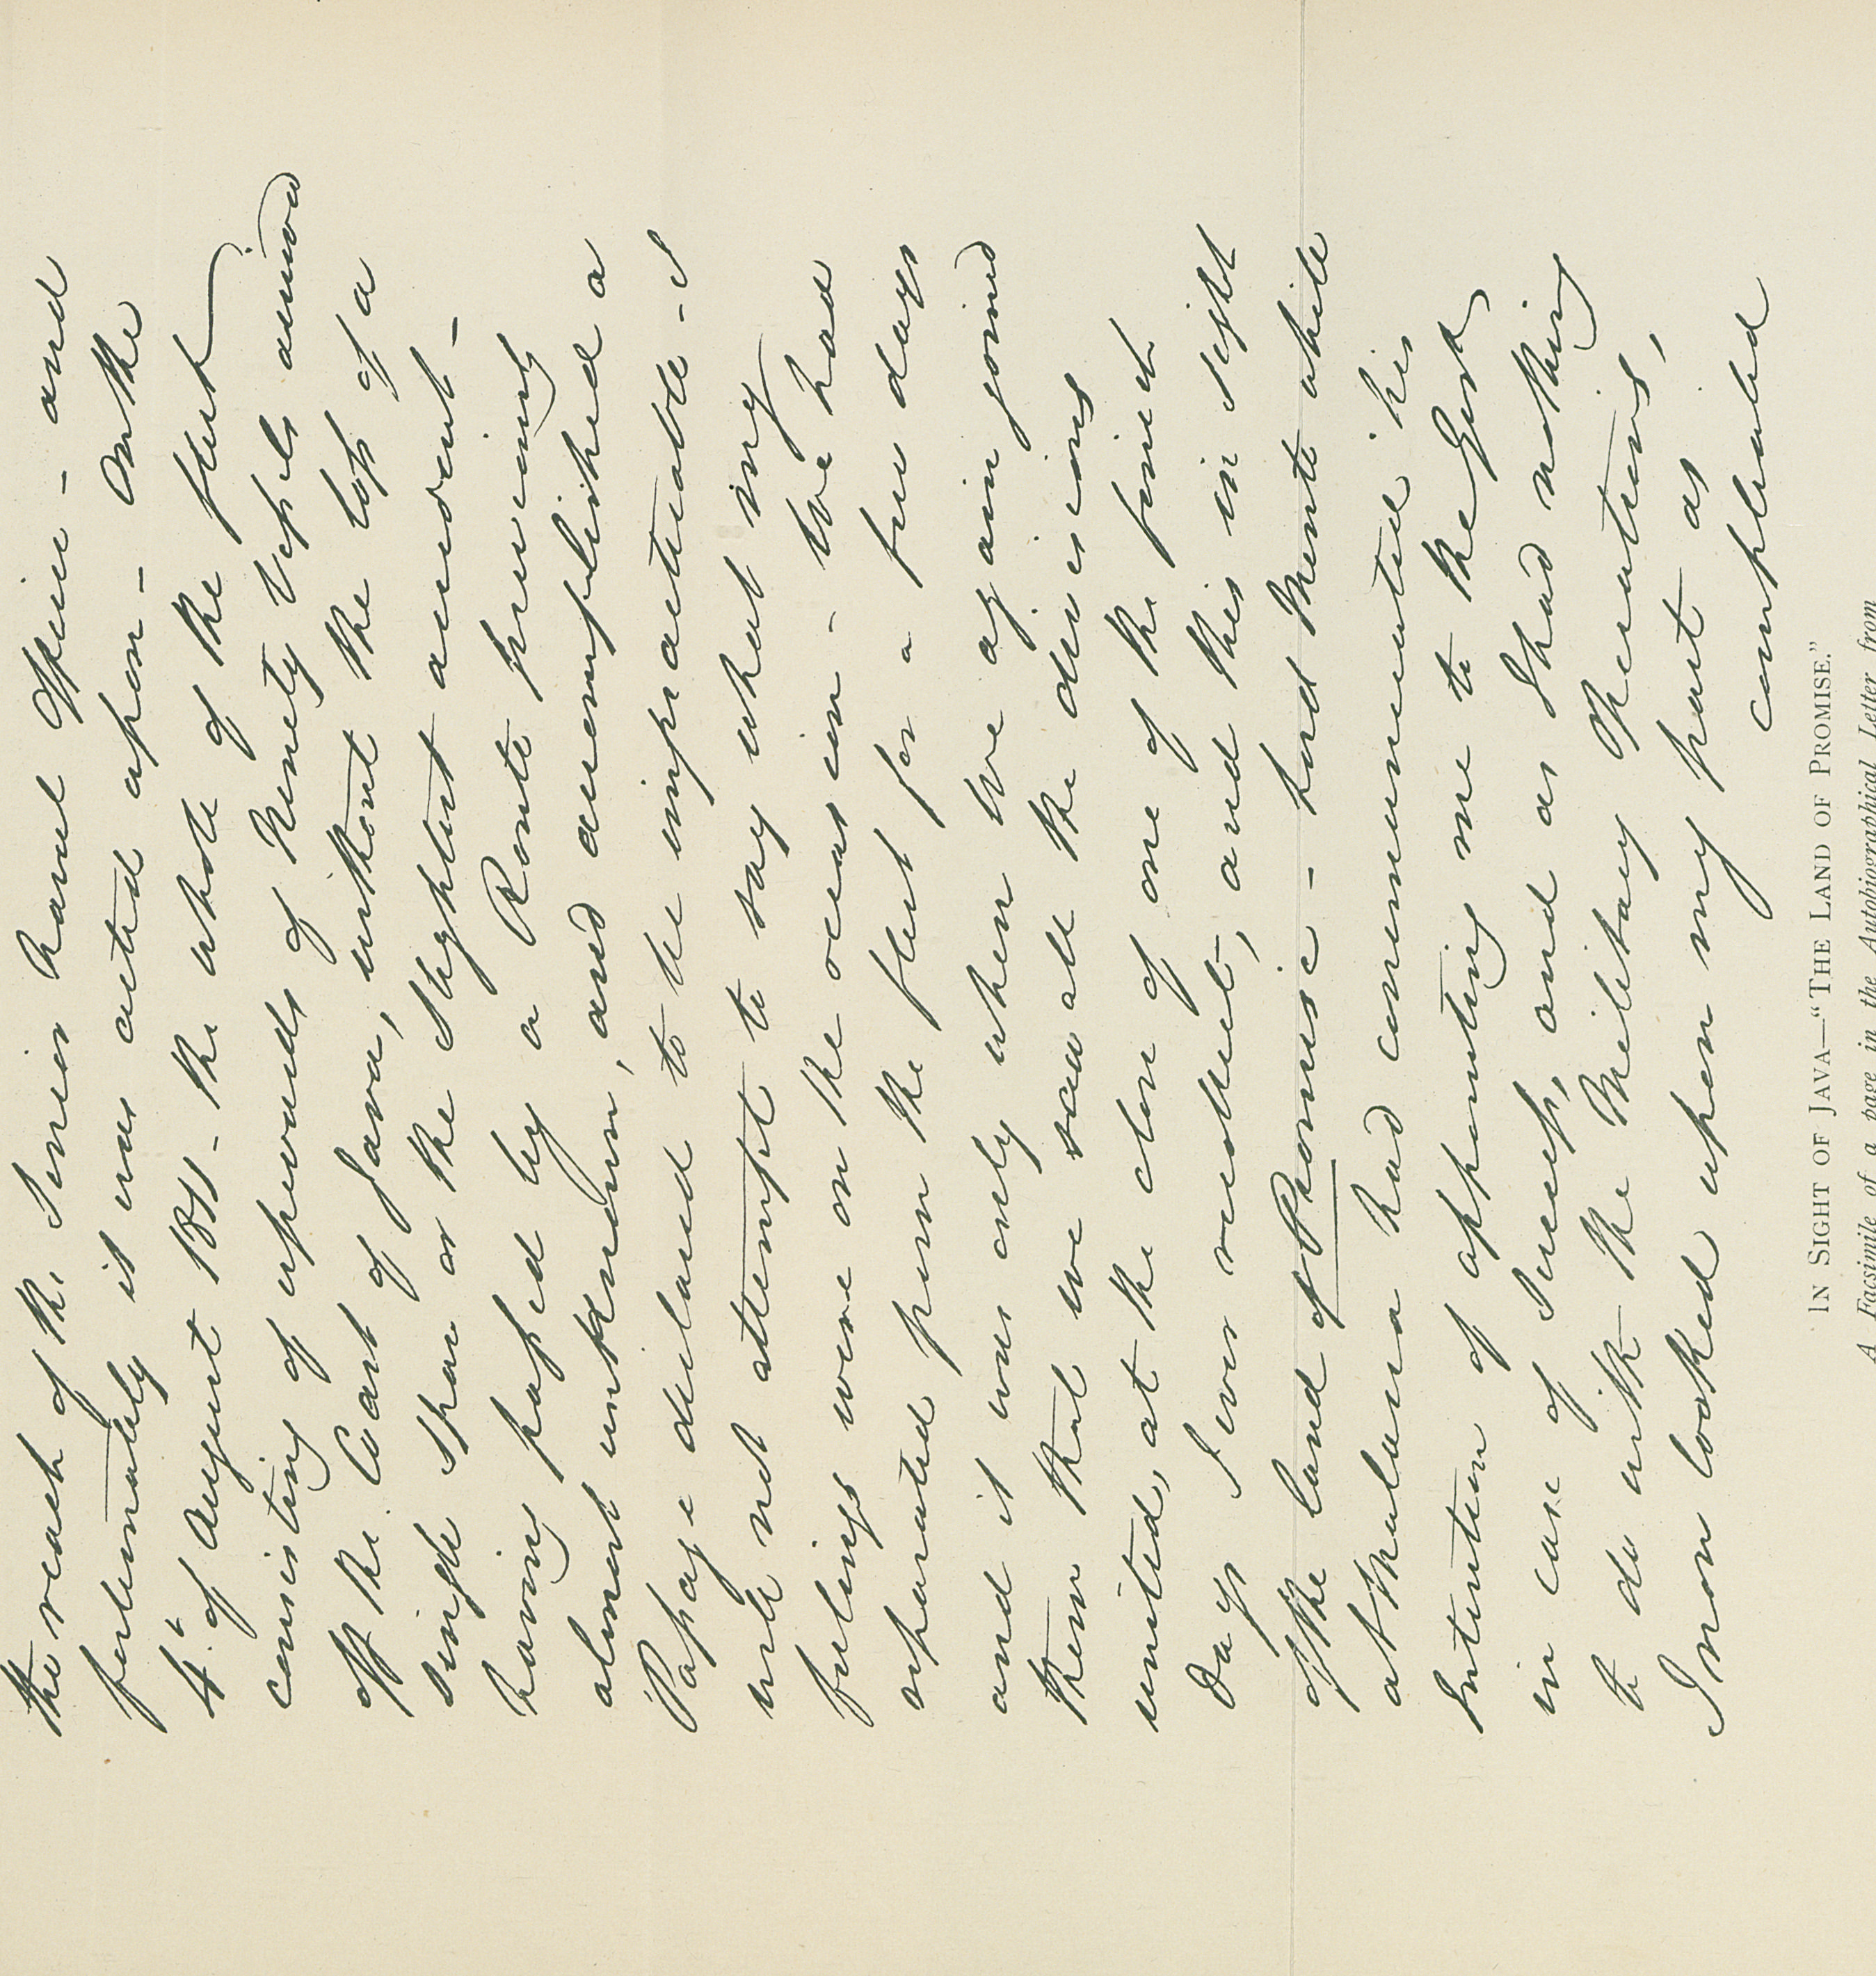 the reach of the Senior Naval Officer - and
fortunately it was acted upon - On the
4th of August 1811 - the whole of the fleet
consisting of upwards of Ninety Vessels arrived
off the Coast of Java, without the loss of a
single Spar or the slightest accident -
having passed by a Route previously
almost unknown, and accomplished a
Passage declared to be impracticable - I
will not attempt to say what my
feelings were on the occasion - We had
separated from the fleet for a few days
and it was only when we again joined
them that we saw all the divisions
united, at the close of one of the finest
days I ever recollect, and this in sight
of the land of Promise - Lord Minto while
at Malacca had communicated his
Intention of appointing me to the Govt
in case of Success, and as I had nothing
to do with the Military Operations,
I now looked upon my part as
completed
IN SIGHT OF JAVA—"THE LAND OF PROMISE."
A Facsimile of a page in the Autobiographical Letter from